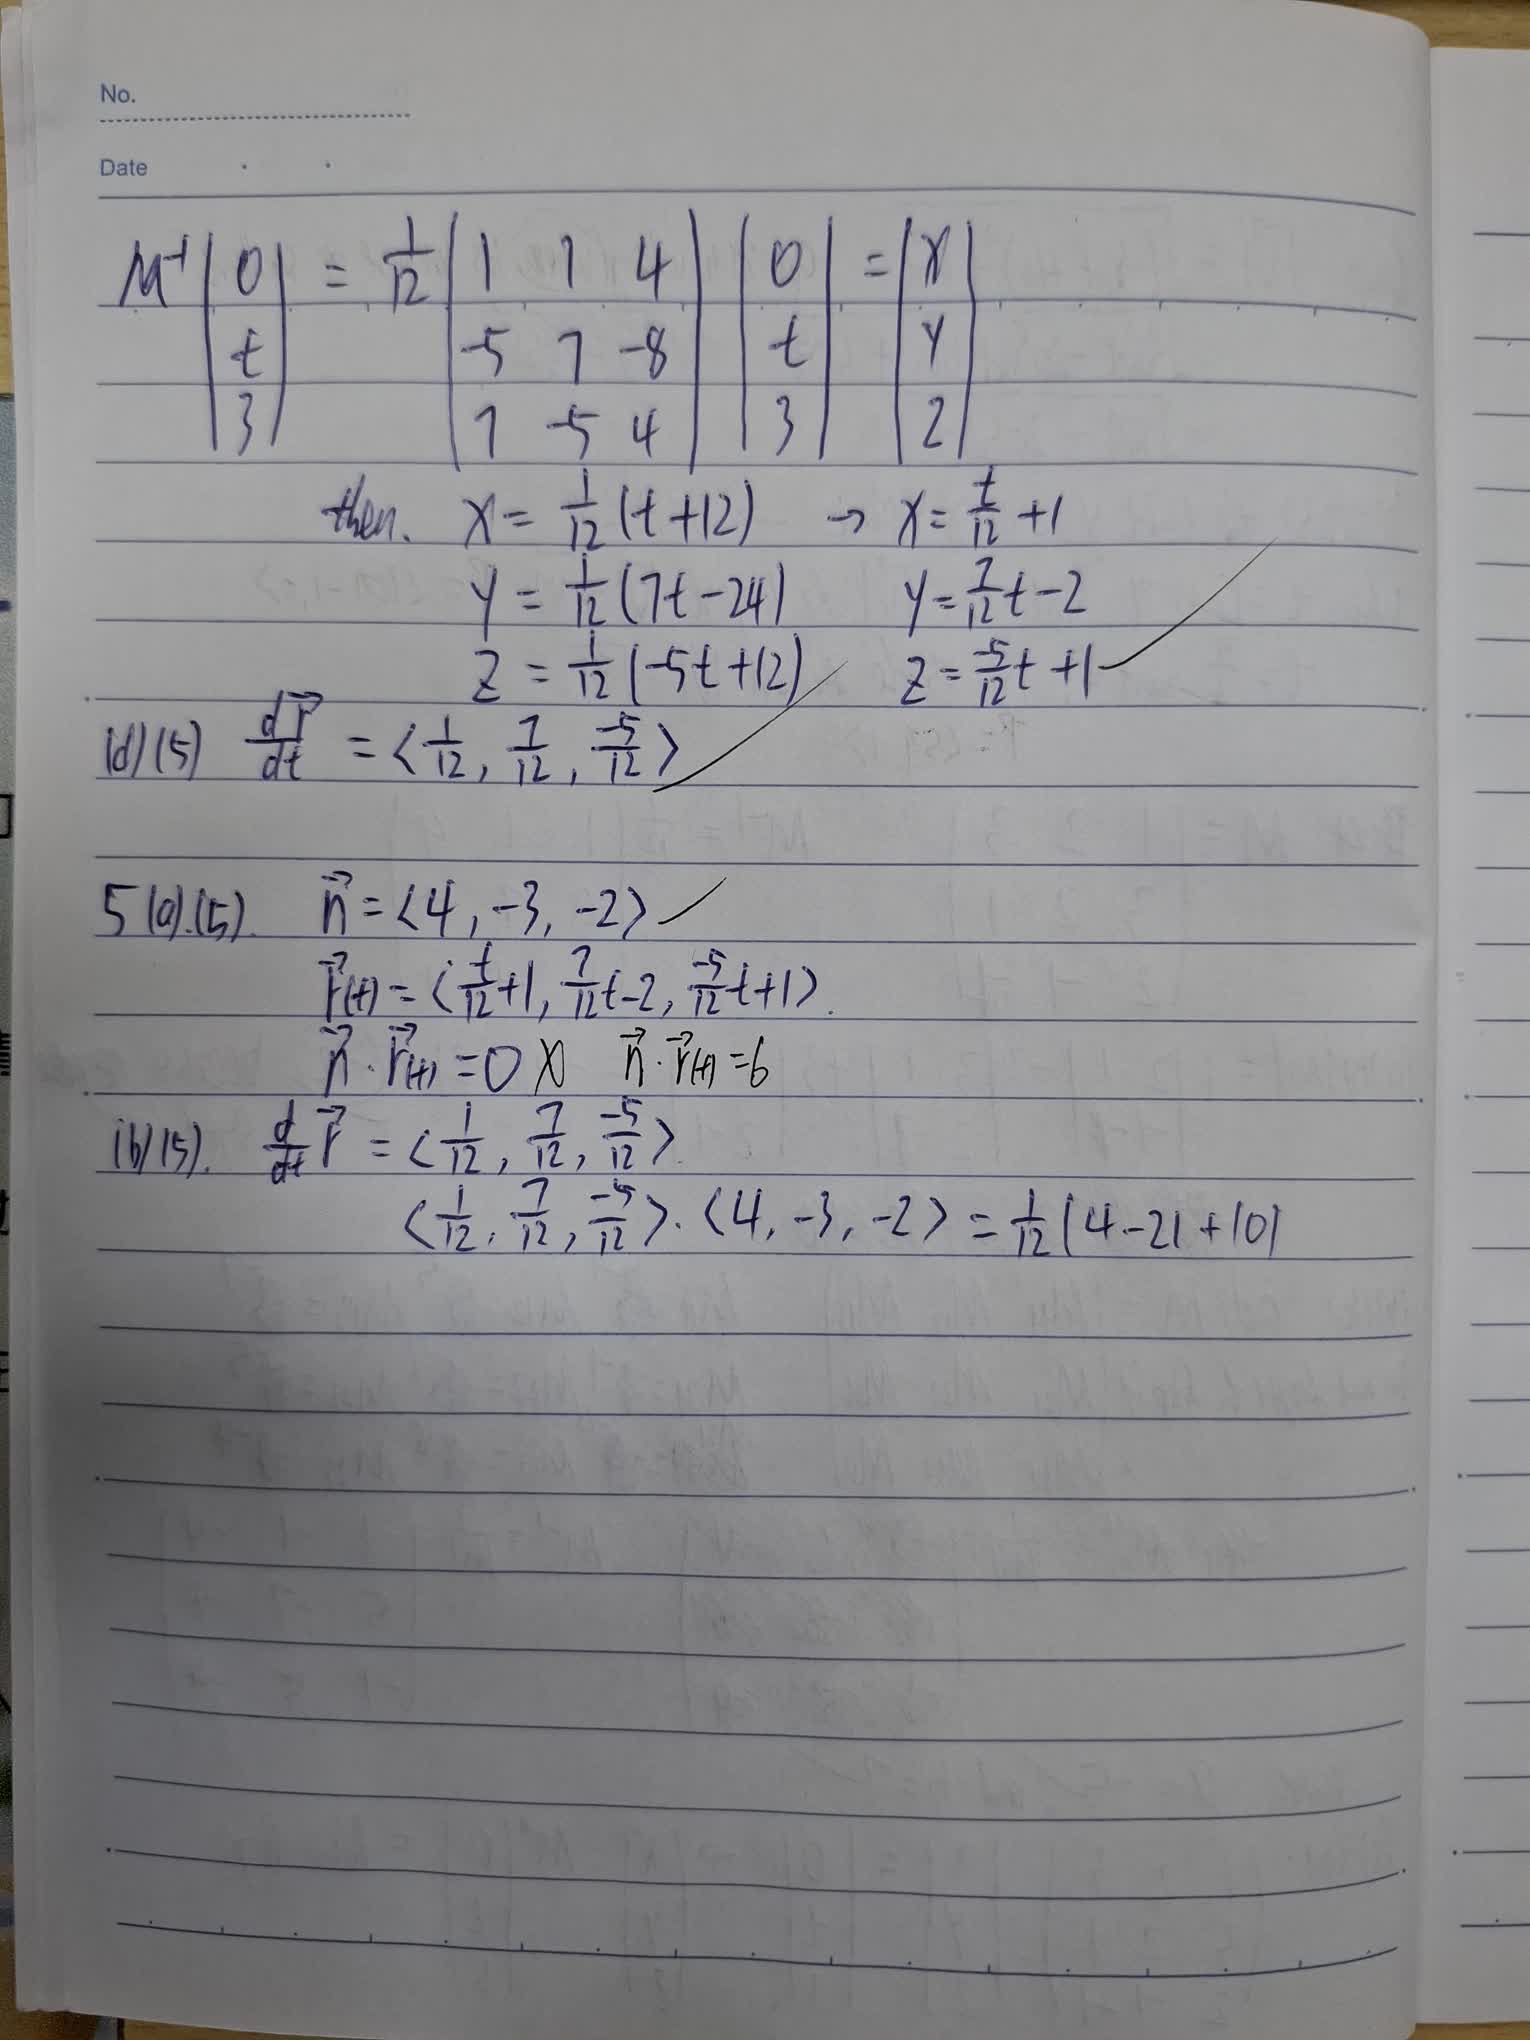 No.
Date
M⁻¹ |0 t 3| = 1/12 |1 1 4| |0| = |x|
|-5 7 -8| |t| |y|
|7 -5 4| |3| |z|
then. x = 1/12 (t+12) → x = t/12 + 1
y = 1/12 (7t-24) y = 7/12 t - 2
z = 1/12 (-5t+12) z = -5/12 t + 1
(d) (5) dr⃗/dt = <1/12, 7/12, -5/12>
5(a).(5). n⃗ = <4, -3, -2>
r⃗(t) = <t/12+1, 7/12 t-2, -5/12 t+1>.
n⃗ · r⃗(t) = 0 X n⃗ · r⃗(t) = 6
(b) (5). d/dt r⃗ = <1/12, 7/12, -5/12>.
<1/12, 7/12, -5/12> · <4, -3, -2> = 1/12 (4-21+10)